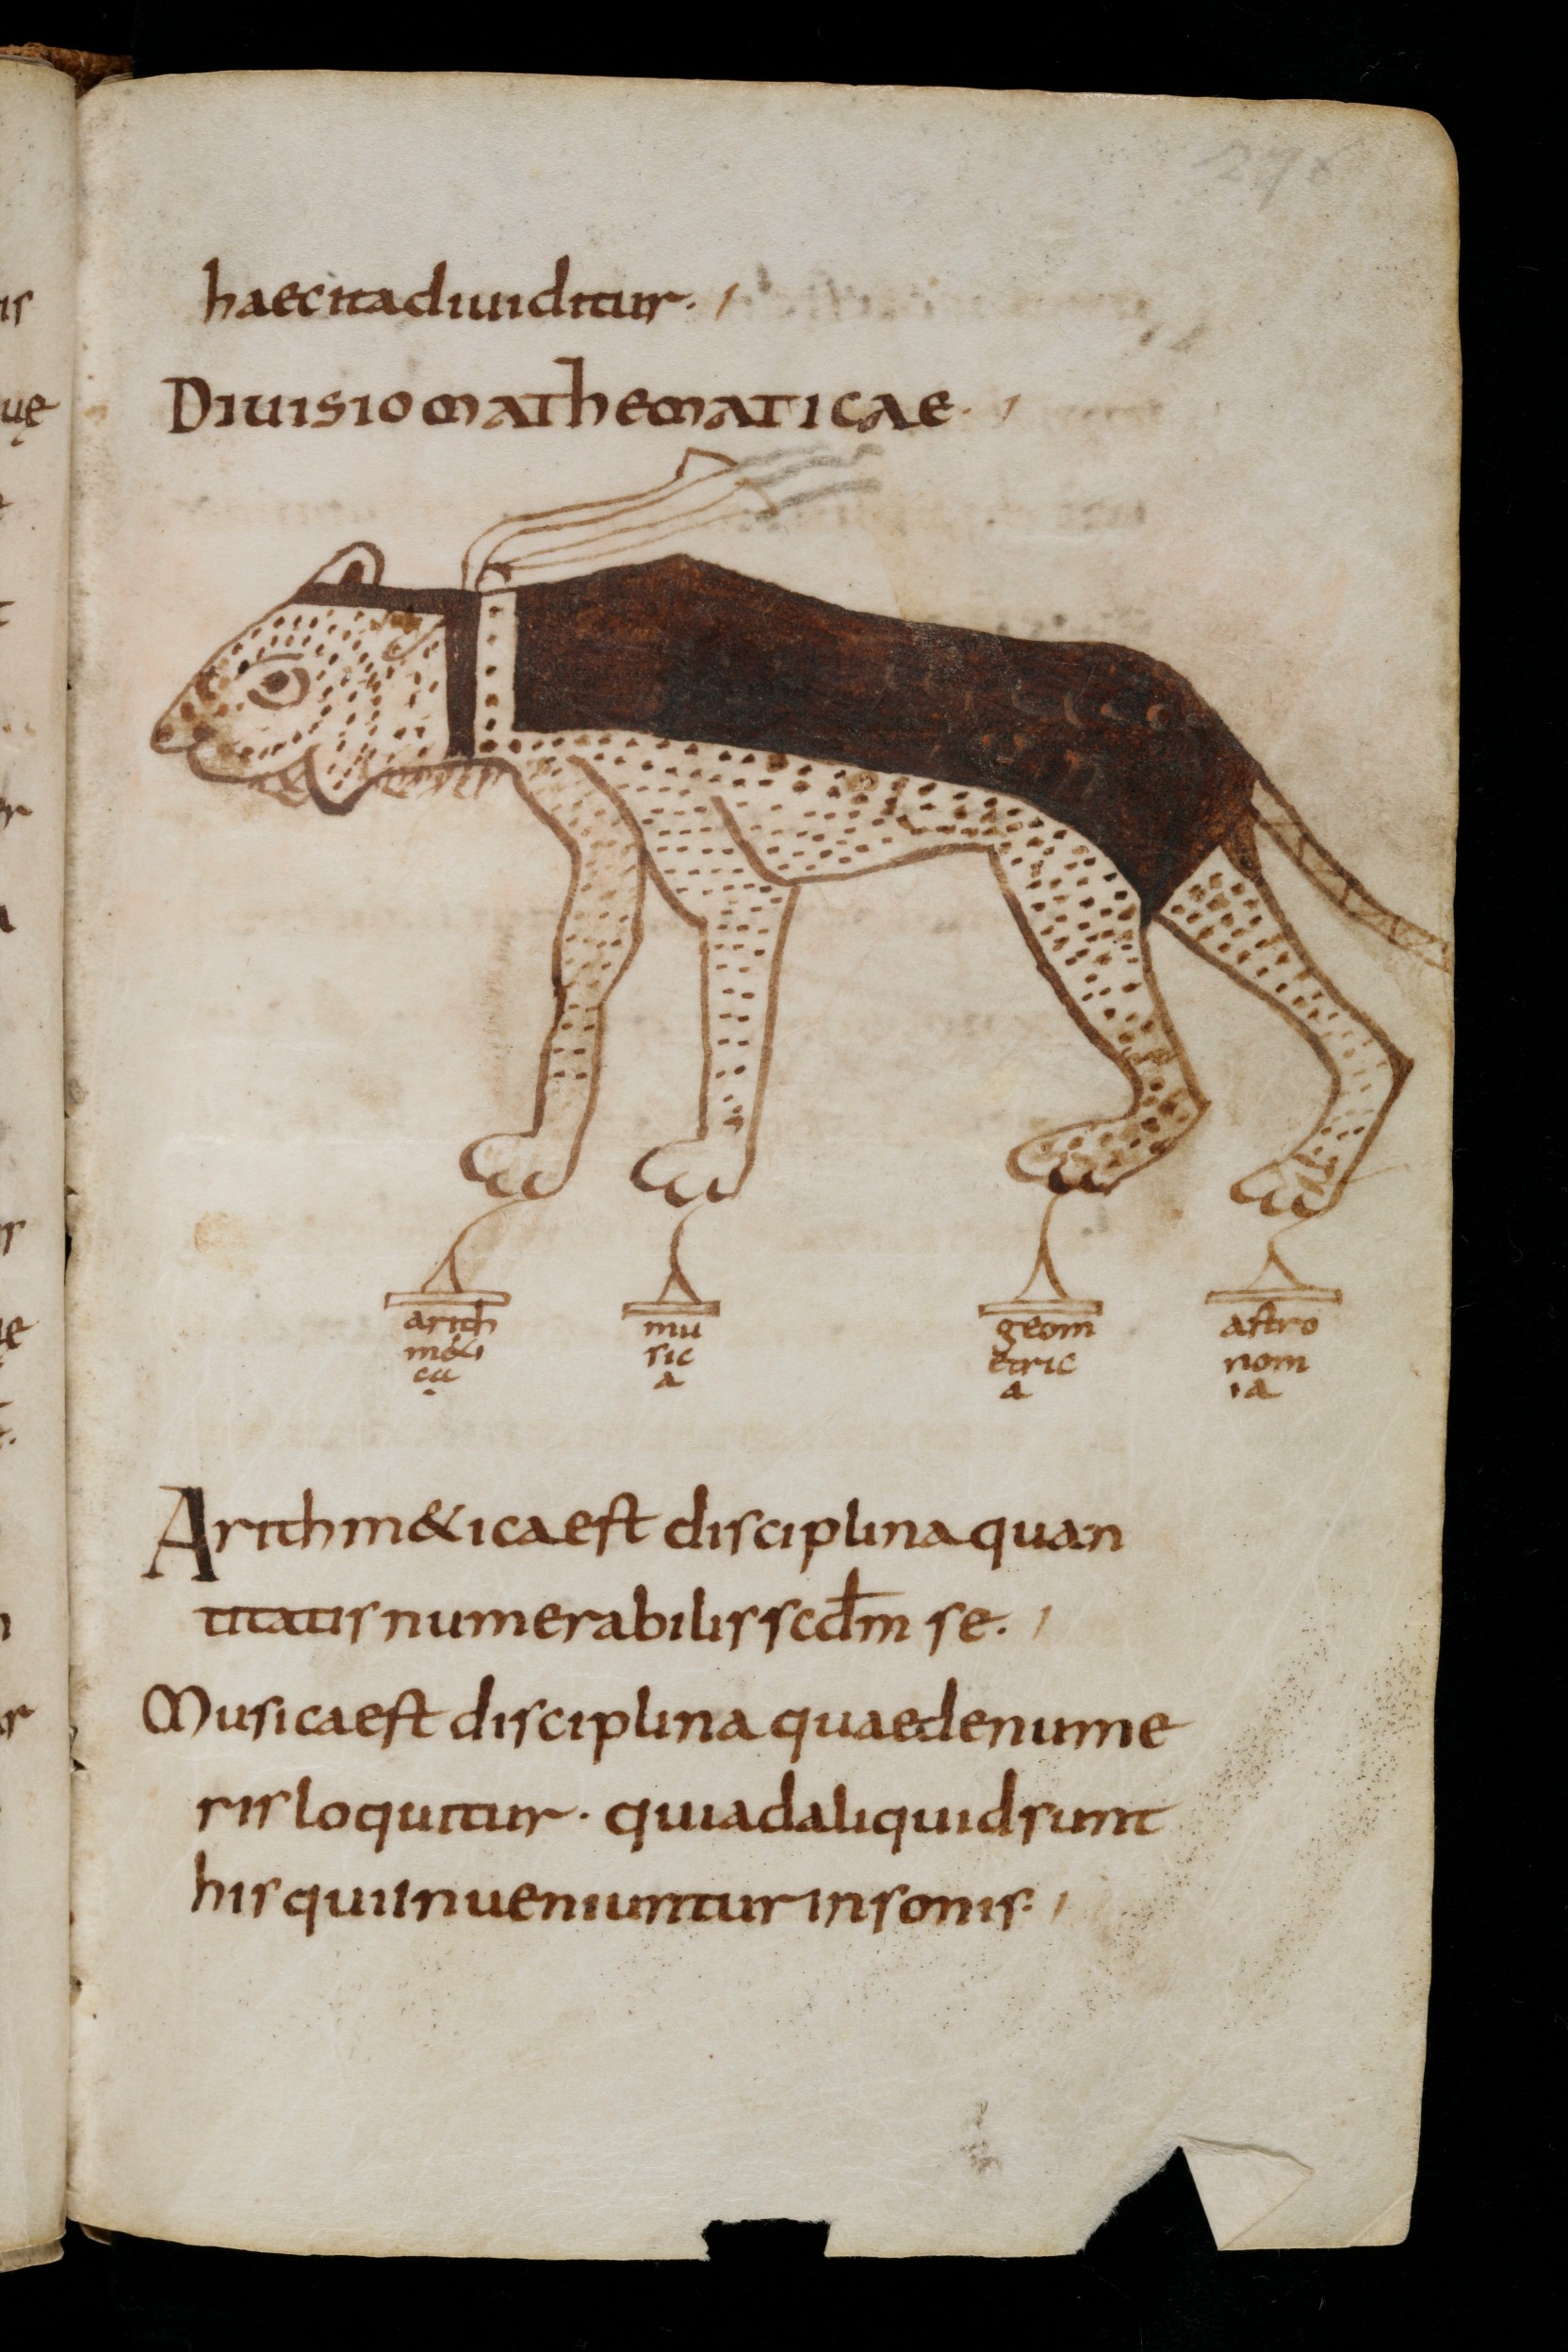 276
haec ita diuiditur.
Diuisio mathematicae.
arith
m&i
ca
mu
sic
a
geom
etric
a
astro
nom
ia
Arithm&ica est disciplina quan
titatis numerabilis scdm se.
Musica est disciplina quae de nume
ris loquitur. qui ad aliquid sunt
his qui inueniuntur in sonis.